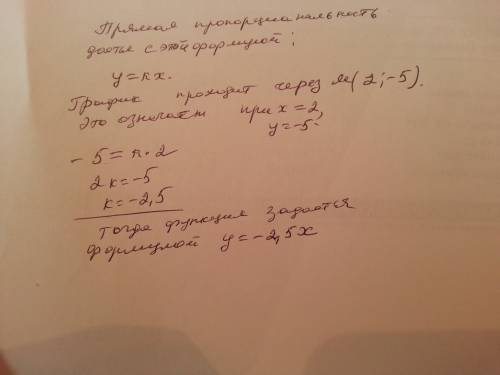 Прямая пропорциональность
дается с этой формулой;
y=kx.
График проходит через М(2;-5).
Это означает при x=2,
y=-5.
-5=k·2
2k=-5
k=-2,5
тогда функция задается
формулой y=-2,5x